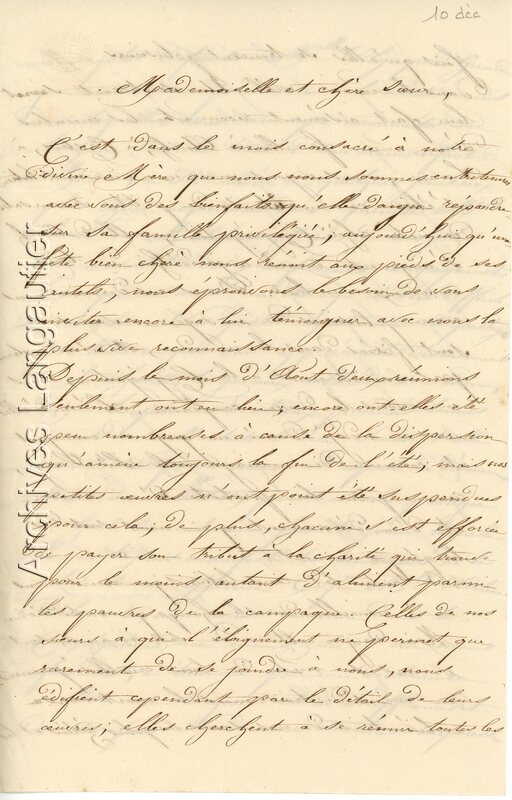 10 déc
Mademoiselle et chère Sœur,
C'est dans le mois consacré à notre
divine Mère que nous nous sommes entretenues
avec vous des bienfaits qu'elle daigne répandre
sur sa famille privilégiée ; aujourd'hui qu'une
fête bien chère nous réunit aux pieds de ses
autels, nous éprouvons le besoin de vous
inviter encore à lui témoigner avec nous la
plus vive reconnaissance.
Depuis le mois d'Aout deux réunions
seulement ont eu lieu ; encore ont-elles été
peu nombreuses à cause de la dispersion
qu'amène toujours la fin de l'été ; mais nos
petites œuvres n'ont point été suspendues
pour cela ; de plus, chacune s'est efforcée
de payer son tribut à la charité qui trouve
pour le moins autant d'aliment parmi
les pauvres de la campagne. Celles de nos
sœurs à qui l'éloignement ne permet que
rarement de se joindre à nous, nous
édifient cependant par le détail de leurs
œuvres ; elles cherchent à se réunir toutes les
Archives Langautier